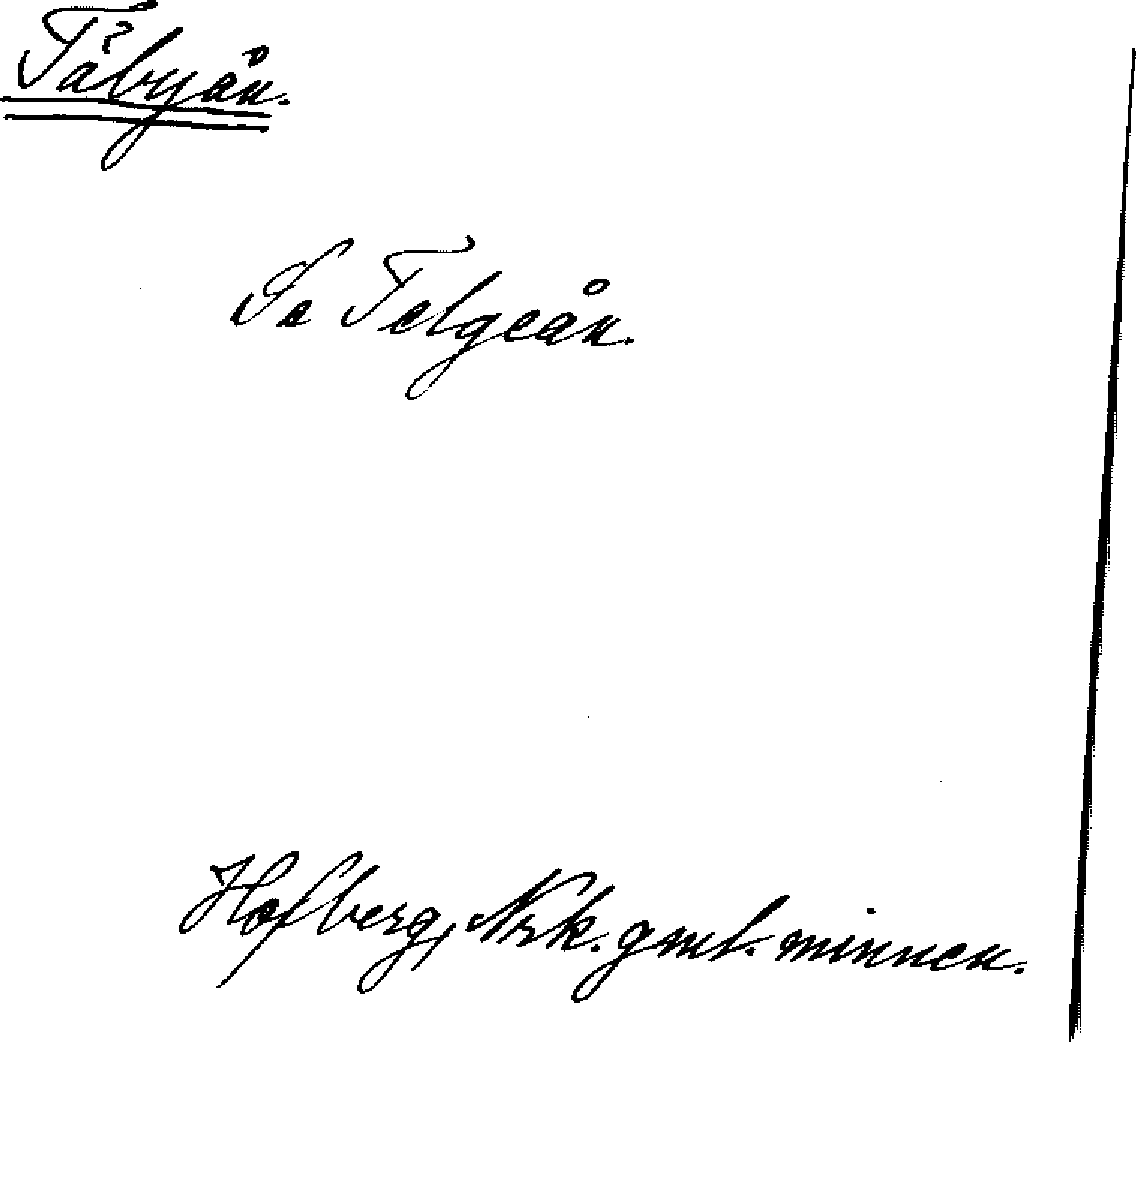 Täbyån.
Se Telgeån.
Hofberg, Nrk. gml. minnen.